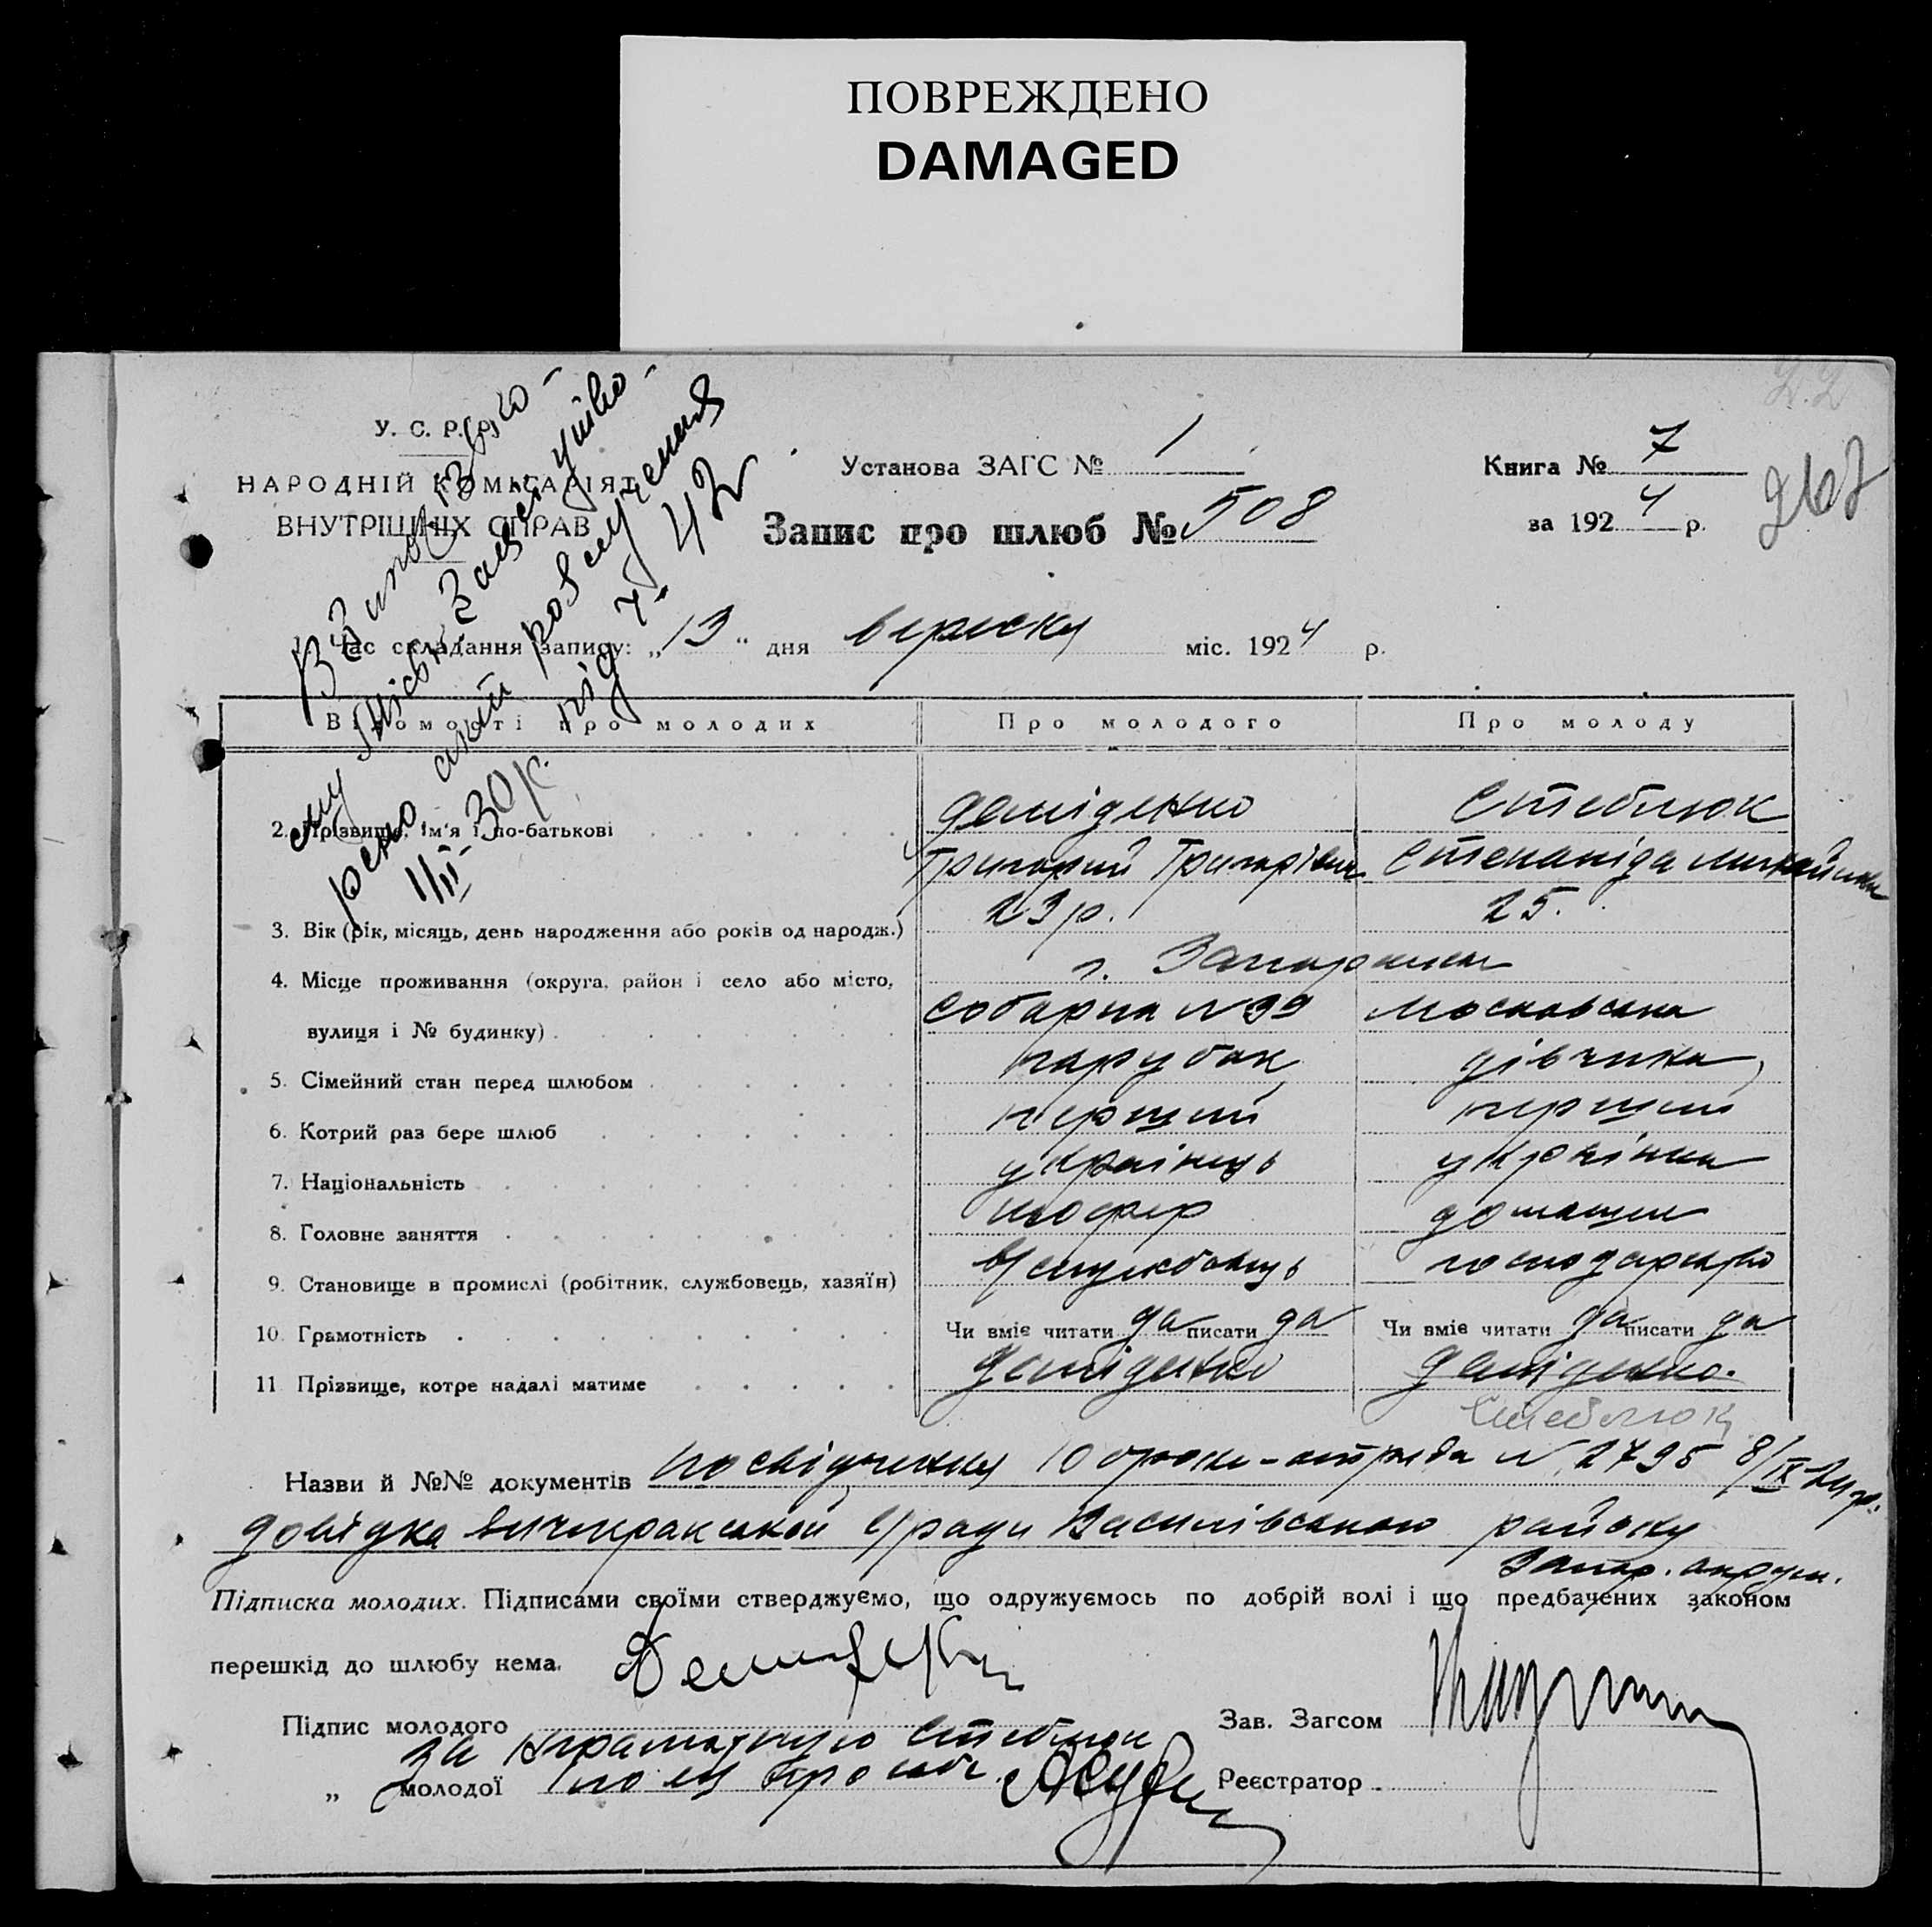 ПОВРЕЖДЕНО
DAMAGED
22
267
У. С. Р. Р.
НАРОДНІЙ КОМІСАРІЯТ
ВНУТРІШНІХ СПРАВ
Установа ЗАГС № 1
Книга № 7
Запис про шлюб № 508
за 1924 р.
В Запорізько-
му
рено акт розлучення
1/III-30 р. під ч. 42
1. Час складання запису: „13“ дня вересня міс. 1924 р.
Відомості про молодих Про молодого Про молоду
2. Прізвище, ім'я і по-батькові Демиденко Стеблюк
Григорий Григорієв Степаніда
3. Вік (рік, місяць, день народження або років од народж.) 23 р. 25.
4. Місце проживання (округа, район і село або місто, г. Запоріжжя
вулиця і № будинку) Соборна N 39 Московська
5. Сімейний стан перед шлюбом парубок дівчина
6. Котрий раз бере шлюб перший перший
7. Національність українець українка
8. Головне заняття шофер домашнє
9. Становище в промислі (робітник, службовець, хазяїн) службовець господарство
10. Грамотність Чи вміє читати да писати да Чи вміє читати да писати да
11. Прізвище, котре надалі матиме Демиденко Демиденко.
Стеблюк
Назви й №№ документів посвідчення 10 N 2795 8/IX 24 р.
довідка с/ради Василівського району
Запор. округи.
Підписка молодих. Підписами своїми стверджуємо, що одружуємось по добрій волі і що предбачених законом
перешкід до шлюбу нема.
Підпис молодого Зав. Загсом
за неграмотную Стеблюк
„ молодої по её просьбе Реєстратор